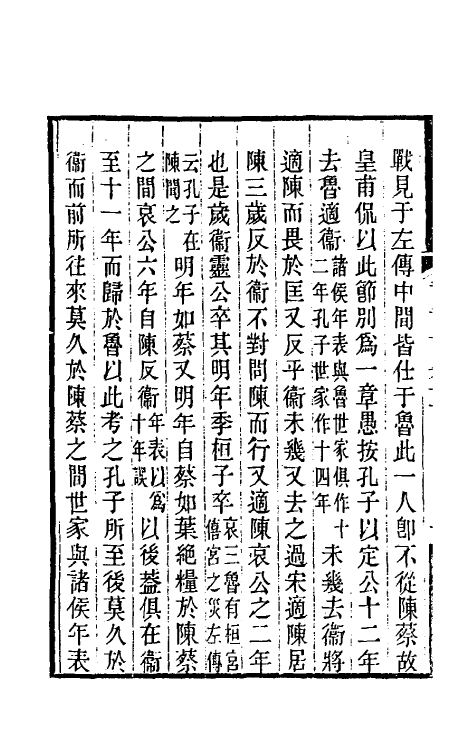 戰見于左傳中間皆仕于魯此一人卽不從陳蔡故
皇甫侃以此節別爲一章愚按孔子以定公十二年
去魯適衞諸侯年表與魯世家俱作十二年孔子世家作十四年未幾去衞將
適陳而畏於匡又反乎衞未幾又去之過宋適陳居
陳三歲反於衞不對問陳而行又適陳哀公之二年
也是歲衞靈公卒其明年季桓子卒哀三魯有桓宮僖宮之災左傳
云孔子在陳聞之明年如蔡又明年自蔡如葉絶糧於陳蔡
之間哀公六年自陳反衞年表以爲十年誤以後葢俱在衞
至十一年而歸於魯以此考之孔子所至後莫久於
衞而前所往來莫久於陳蔡之間世家與諸侯年表